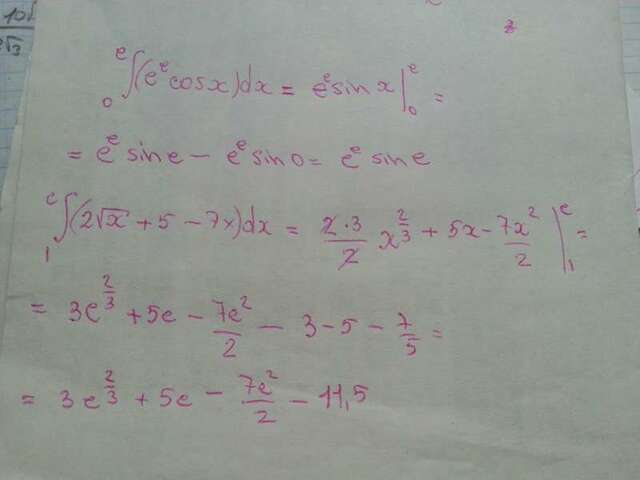 10√
e√3
e∫0 (eᵉ cosx)dx = eᵉ sin x |₀ᵉ =
= eᵉ sin e − eᵉ sin 0 = eᵉ sin e
e∫1 (2√x + 5 − 7x)dx = 2·3/2 x^(2/3) + 5x − 7x²/2 |₁ᵉ =
= 3e^(2/3) + 5e − 7e²/2 − 3 − 5 − 7/5 =
= 3e^(2/3) + 5e − 7e²/2 − 11,5